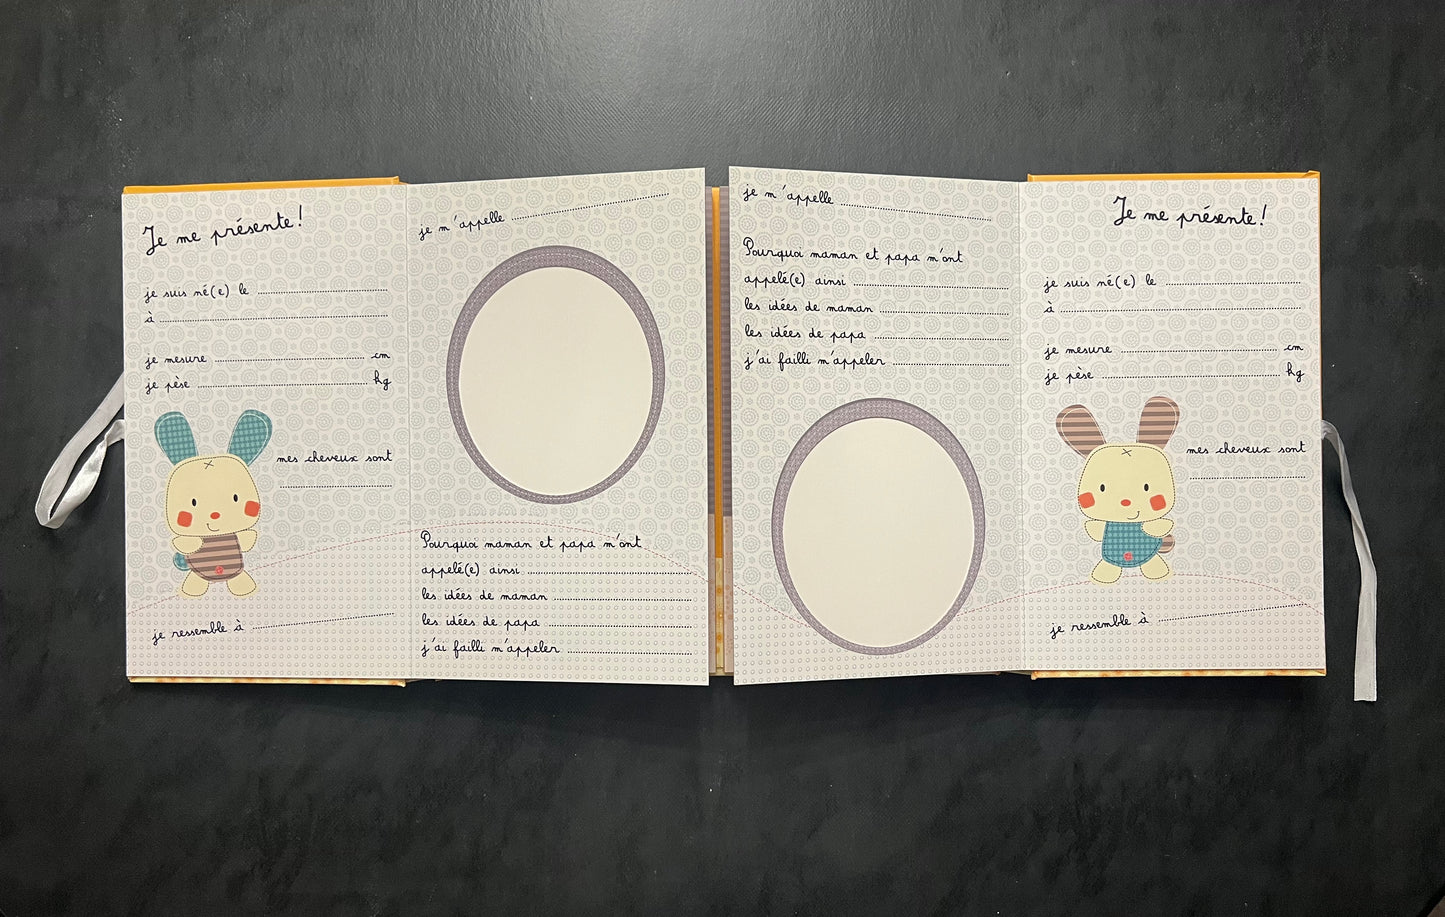 Je me présente!
je suis né(e) le
à
je mesure cm
je pèse kg
mes cheveux sont
je ressemble à
je m'appelle
Pourquoi maman et papa m'ont
appelé(e) ainsi
les idées de maman
les idées de papa
j'ai failli m'appeler
je m'appelle
Pourquoi maman et papa m'ont
appelé(e) ainsi
les idées de maman
les idées de papa
j'ai failli m'appeler
Je me présente!
je suis né(e) le
à
je mesure cm
je pèse kg
mes cheveux sont
je ressemble à